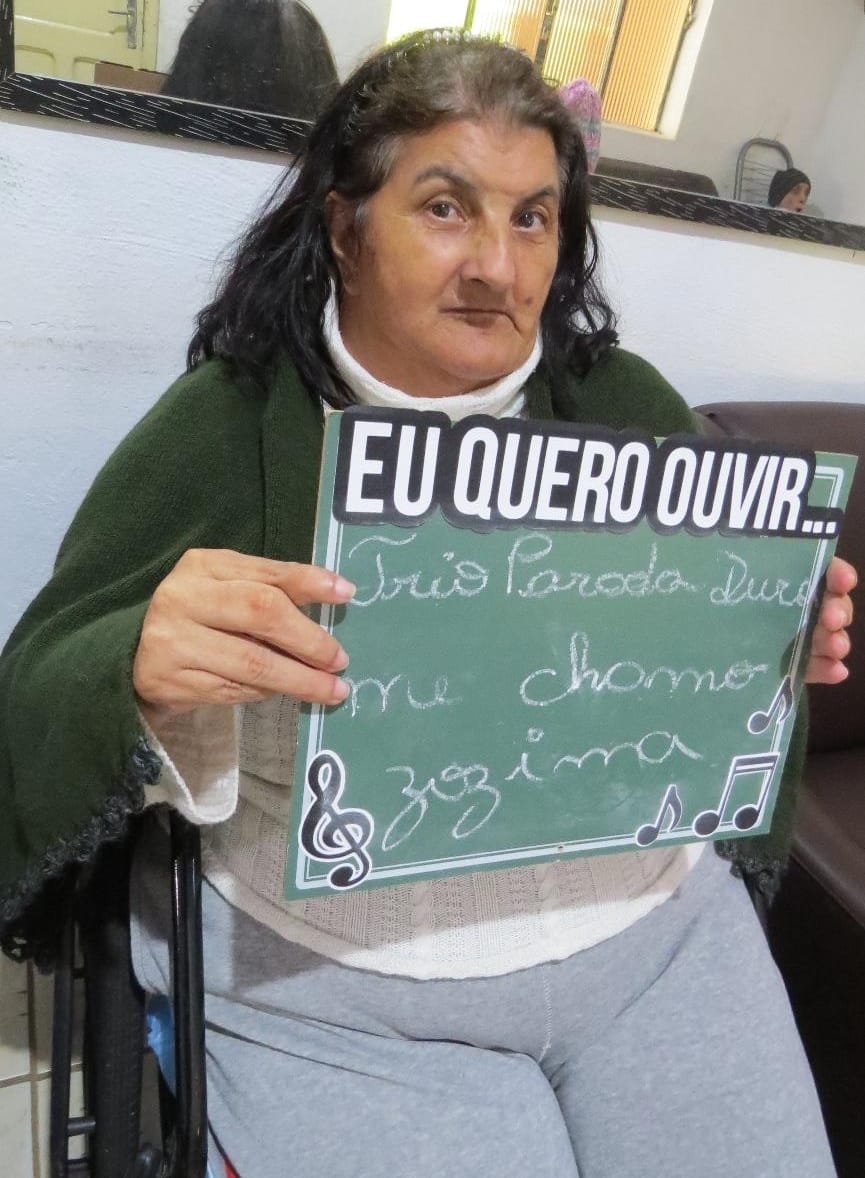 EU QUERO OUVIR...
Trio Parada Dura
me chamo
zozima